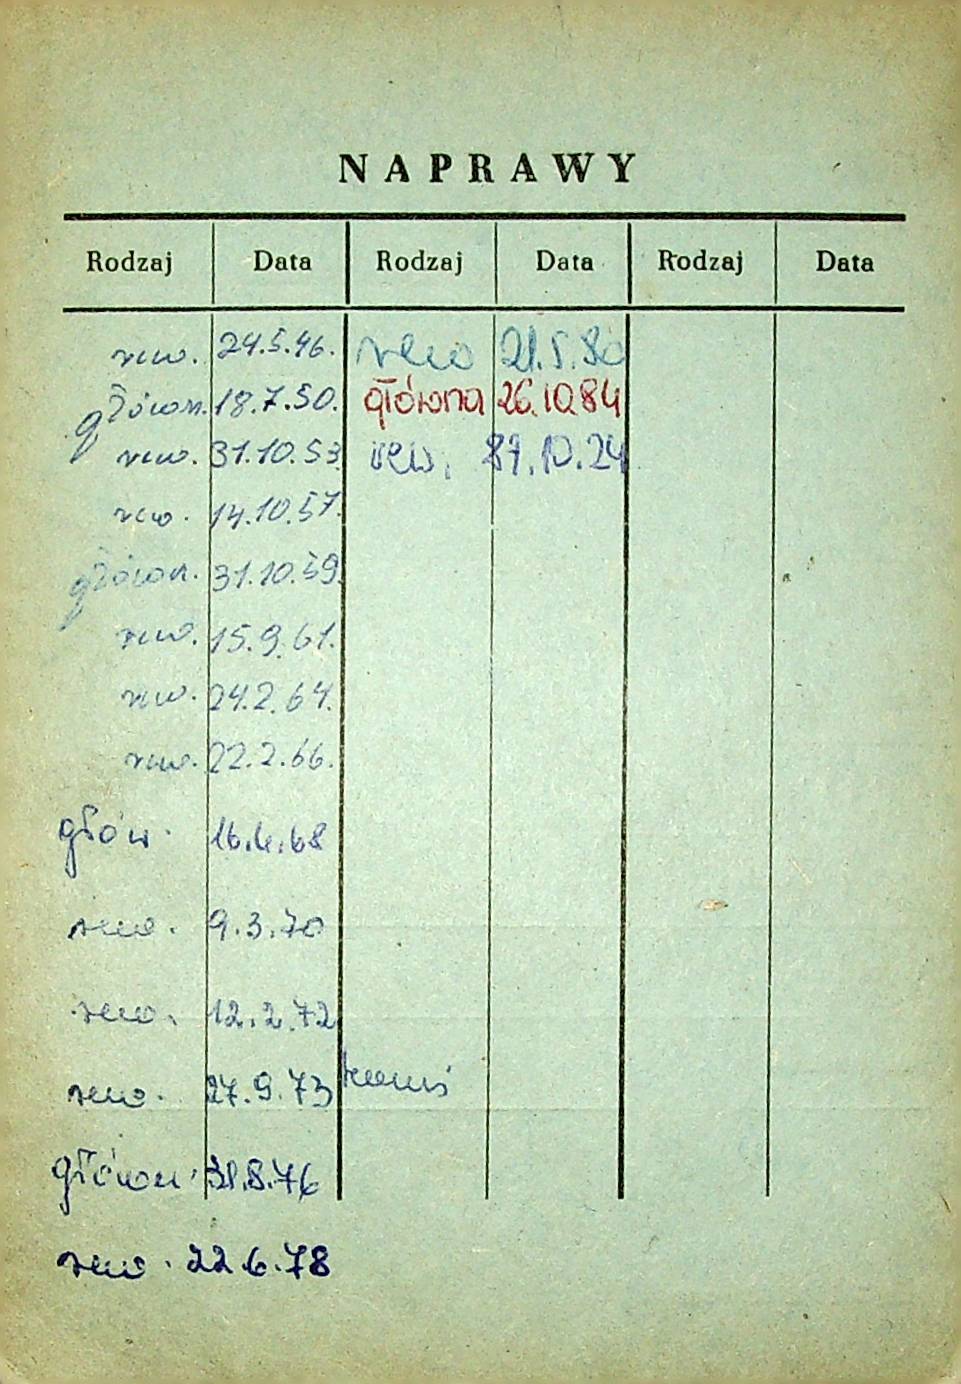 NAPRAWY
Rodzaj Data Rodzaj Data Rodzaj Data
rew. 24.5.46. rew 21.5.80
główn. 18.7.50. główna 26.10.84
rew. 31.10.53 rew. 87.10.24
rew. 14.10.57.
główn. 31.10.59.
rew. 15.9.61.
rew. 24.2.64.
rew. 22.2.66.
głów. 16.4.68
rew. 9.3.70
rew. 12.2.72
rew. 27.9.73
główn. 31.8.76
rew. 22.6.78